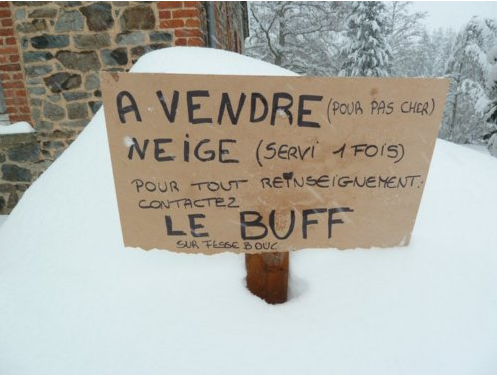 A VENDRE (POUR PAS CHER)
NEIGE (SERVI 1 FOIS)
POUR TOUT REINSEIGNEMENT:
CONTACTEZ
LE BUFF
SUR FESSE BOUC